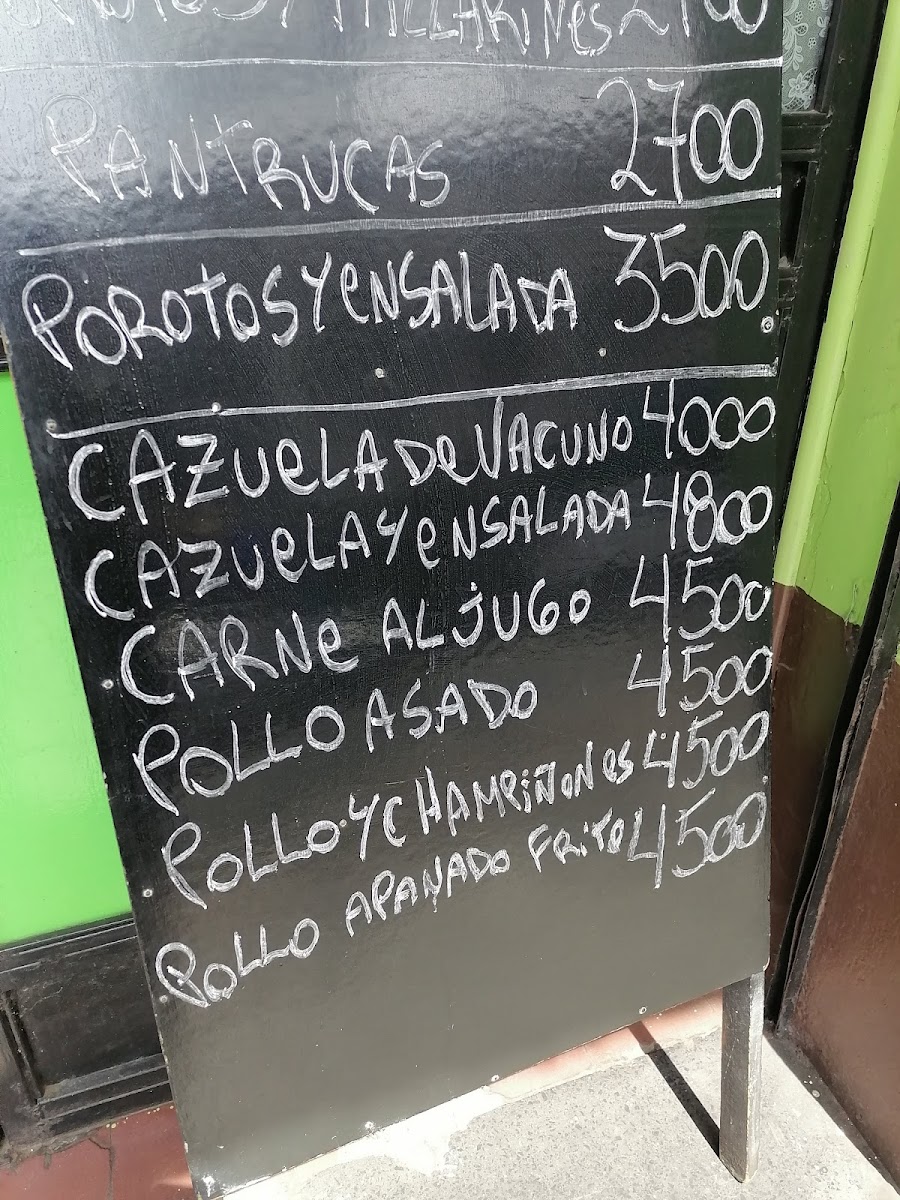 TALLARINES 2700
PANTRUCAS 2700
POROTOS Y ENSALADA 3500
CAZUELA DE VACUNO 4000
CAZUELA Y ENSALADA 4800
CARNE AL JUGO 4500
POLLO ASADO 4500
POLLO Y CHAMPIÑONES 4500
POLLO APANADO FRITO 4500